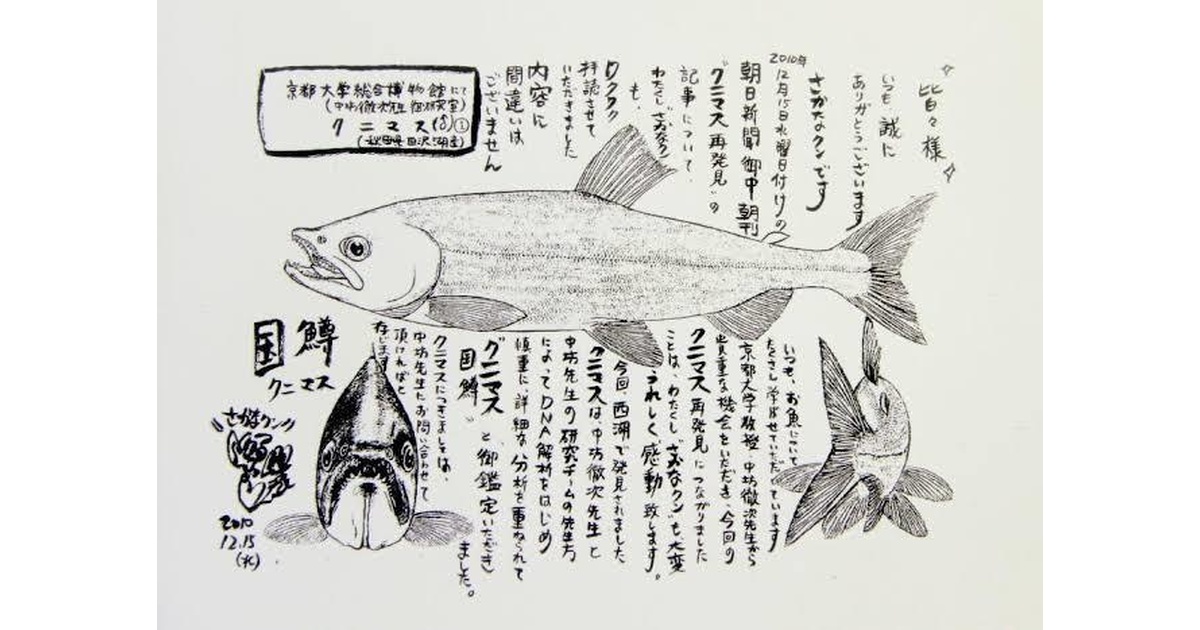 皆々様
いつも誠に
ありがとうございます
さかなクンです
2010年
12月15日水曜日付けの
朝日新聞御中 朝刊
"クニマス再発見"の
記事について、
わたくしさかなクン
も、
ワクワク
拝読させて
いただきました
内容に
間違いは
ございません
京都大学総合博物館にて
(中坊徹次先生 御研究室)
クニマス(♂)①
(秋田県田沢湖産)
いつも、お魚について
たくさん学ばせていただいています
京都大学教授 中坊徹次先生から
貴重な機会をいただき、今回の
クニマス再発見につながりました
ことは、わたくしさかなクンも大変
うれしく感動致します。
今回、西湖で発見されました
クニマスは、中坊徹次先生と
中坊先生の研究チームの先生方
によってDNA解析をはじめ
慎重に、詳細な分析を重ねられて
"クニマス
国鱒"と御鑑定いただき
ました。
クニマスにつきましては、
中坊先生にお問い合わせて
頂ければと
存じます
国鱒
クニマス
さかなクン
2010
12.15
(水)